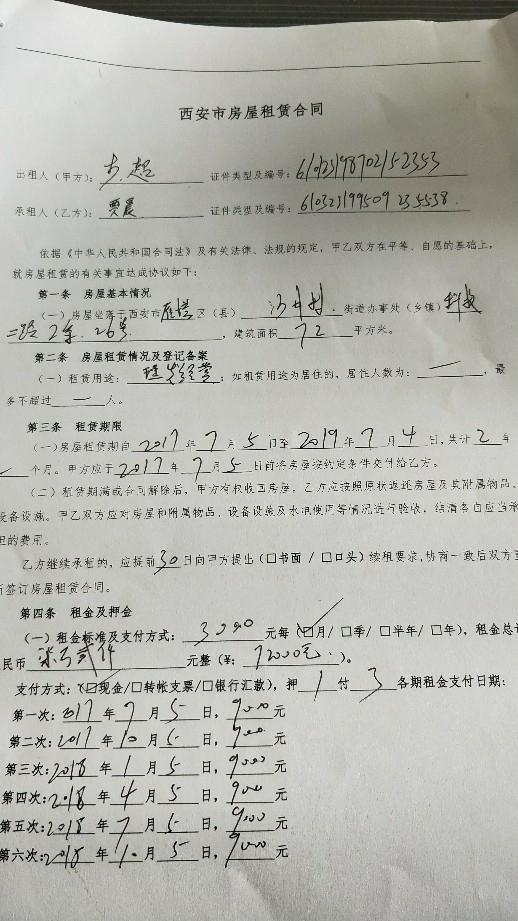 西安市房屋租赁合同
出租人（甲方）： 证件类型及编号：610323198702152353
承租人（乙方）：贾晨 证件类型及编号：610323199509235538
依据《中华人民共和国合同法》及有关法律、法规的规定，甲乙双方在平等、自愿的基础上，
就房屋租赁的有关事宜达成协议如下：
第一条 房屋基本情况
（一）房屋坐落于西安市雁塔区（县）沙井村街道办事处（乡镇）科技
二路 26号，建筑面积72平方米。
第二条 房屋租赁情况及登记备案
（一）租赁用途：理发经营；如租赁用途为居住的，居住人数为：一，最
多不超过一人。
第三条 租赁期限
（一）房屋租赁期自2017年7月5日至2019年7月4日，共计2年
个月。甲方应于2017年7月5日前将房屋按约定条件交付给乙方。
（二）租赁期满或合同解除后，甲方有权收回房屋，乙方应按照原状返还房屋及其附属物品、
设备设施。甲乙双方应对房屋和附属物品、设备设施及水电使用等情况进行验收，结清各自应当承
担的费用。
乙方继续承租的，应提前30日向甲方提出（□书面 / □口头）续租要求，协商一致后双方重
新签订房屋租赁合同。
第四条 租金及押金
（一）租金标准及支付方式：3000元每（☑月/ □季/ □半年/ □年），租金总计
民币柒万贰仟元整（¥：72000元）。
支付方式：（☑现金/□转帐支票/□银行汇款），押1付3各期租金支付日期：
第一次：2017年7月5日，9000元
第二次：2017年10月5日，9000元
第三次：2018年1月5日，9000元
第四次：2018年4月5日，9000元
第五次：2018年7月5日，9000元
第六次：2018年10月5日，9000元